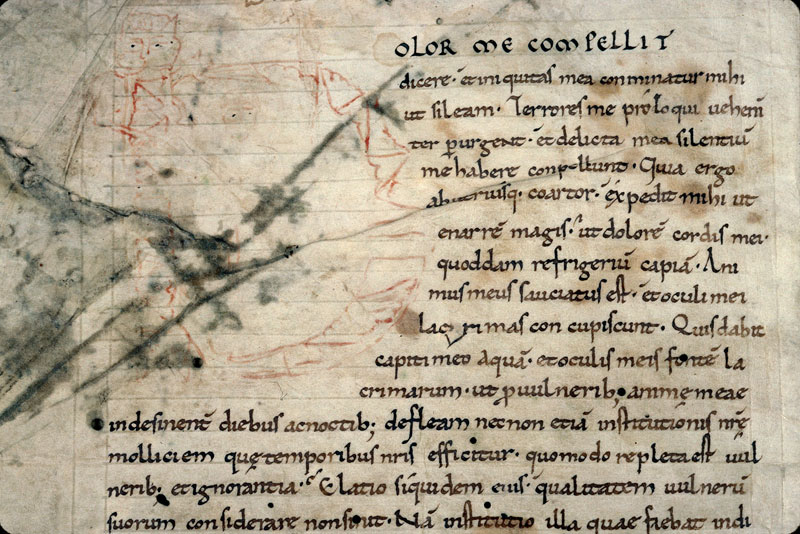 OLOR ME COMPELLIT
dicere · et iniquitas mea conminatur mihi
ut sileam · Terrores me proloqui uehem̄
ter purgent · et delicta mea silentiū
me habere conpellunt · Quia ergo
coartor · expedit mihi ut
enarrē magis · ut dolorē cordis mei ·
quoddam refrigeriū capiā · Ani
mus meus sauciatus est · et oculi mei
lacrimas concupiscunt · Quis dabit
capiti meo aquā · et oculis meis fontē la
crimarum · ut p uulnerib; animę meae
indesinent̄ diebus ac noctib; defleam necnon etiā institutionis nr̄ę
molliciem quę temporibus nr̄is efficitur · quomodo repleta est uul
nerib; et ignorantia · Elatio siquidem eius · qualitatem uulnerū
suorum considerare non sinit · Nā institutio illa quae fiebat indi